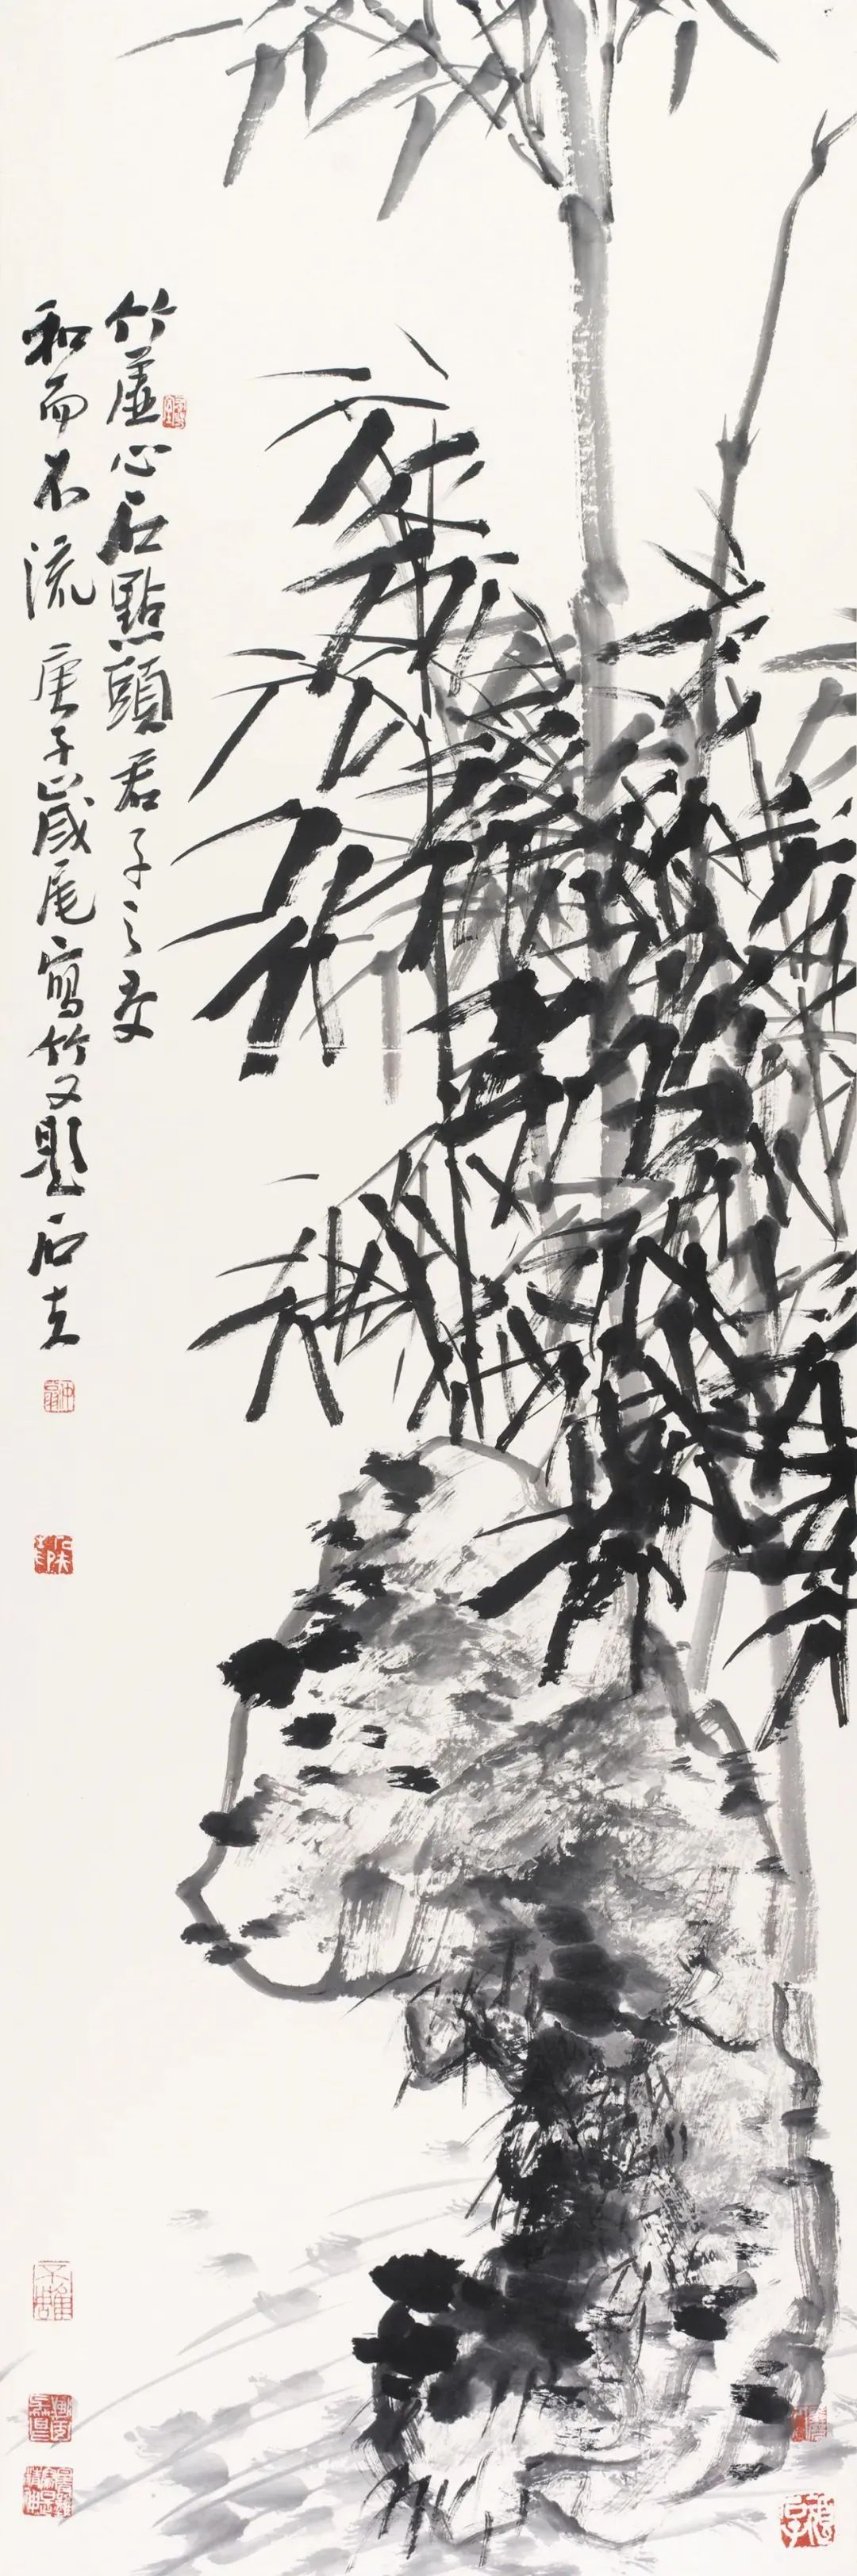 竹虛心石點頭君子之交
和而不流庚子歲尾寫竹又題石老